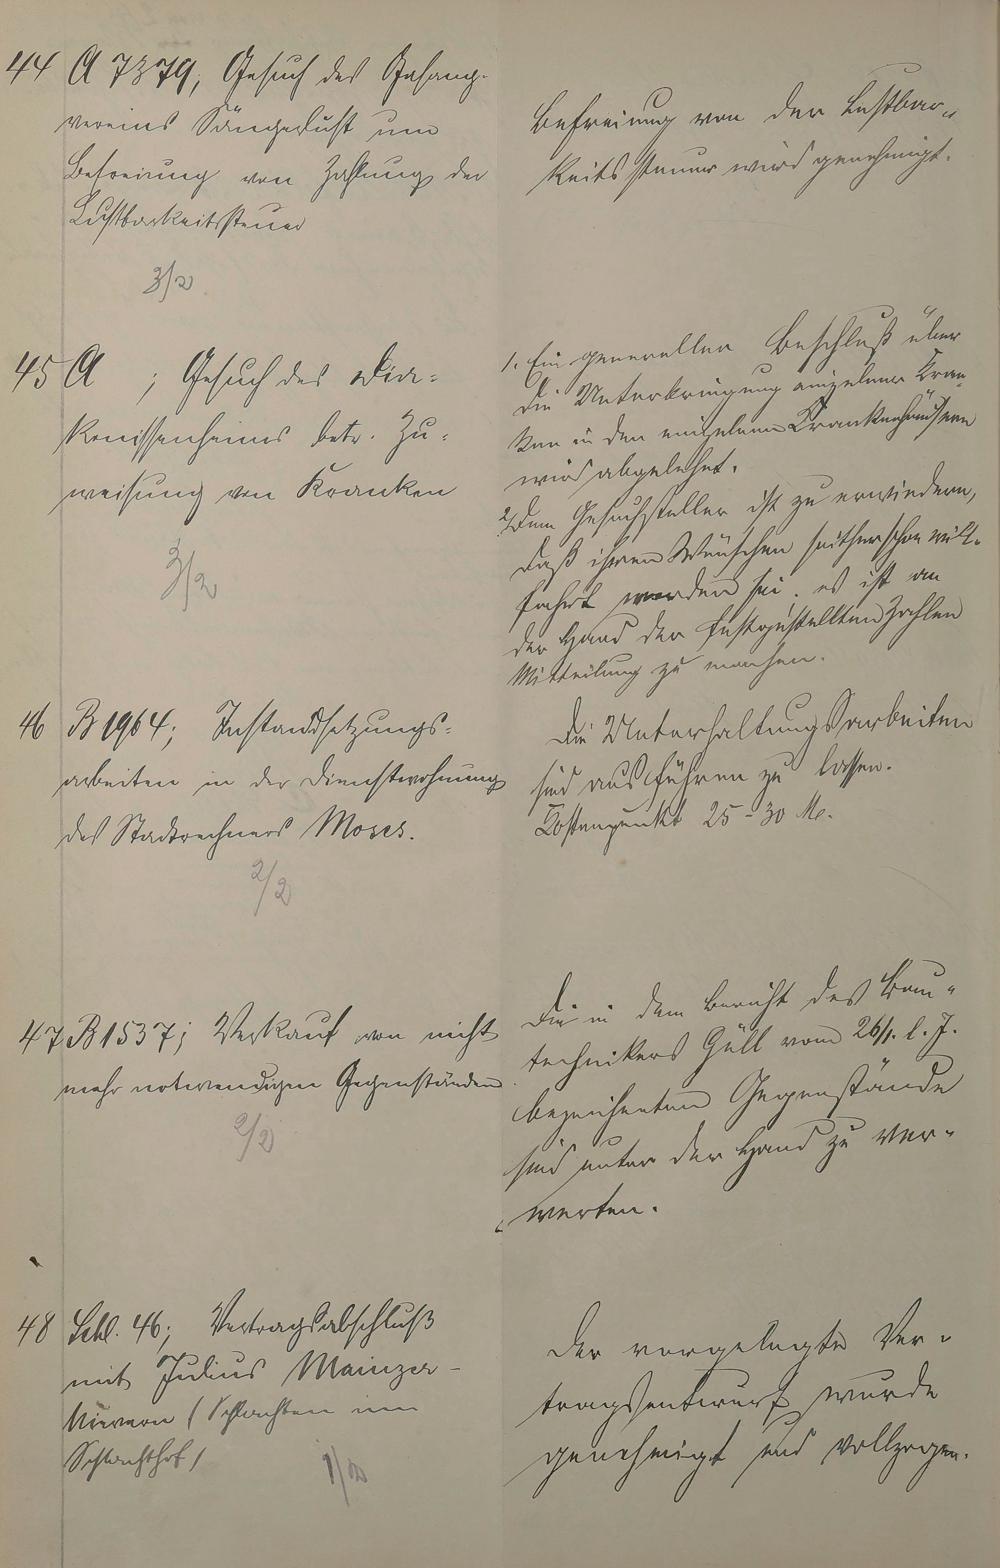 44 A 7379, Gesuch des Gesang-
vereins Sängerlust um
Befreiung von Zahlung der
Lustbarkeitssteuer
3/2
Befreiung von der Lustbar-
keitssteuer wird genehmigt.
45 A ; Gesuch des Dia-
konissenheims betr. Zu-
weisung von Kranken
3/2
1. Ein genereller Beschluß über
die Unterbringung einzelner Kran-
ken in den einzelnen Krankenhäusern
wird abgelehnt.
2. Dem Gesuchsteller ist zu erwiedern,
daß ihren Wünschen seither schon will-
fahrt worden sei. es ist an
der Hand der festgestellten Zahlen
Mitteilung zu machen.
46 B 1964; Instandsetzungs-
arbeiten in der Dienstwohnung
des Stadtrechners Moses.
2/2
Die Unterhaltungsarbeiten
sind ausführen zu lassen.
Kostenpunkt 25-30 M.
47 B 1537; Verkauf von nicht
mehr notwendigen Gegenständen
2/2
Die in dem Bericht des Bau-
technikers Güll vom 26/1. l. J.
bezeichneten Gegenstände
sind unter der Hand zu ver-
werten.
48 Schl. 46; Vertragsabschluß
mit Julius Mainzer-
(Schlachten im
Schlachthof)
1/2
Der vorgelegte Ver-
tragsentwurf wurde
genehmigt und vollzogen.